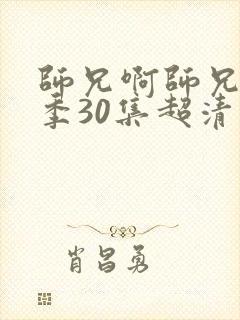 師兄啊師兄
季30集超清
肖昌勇